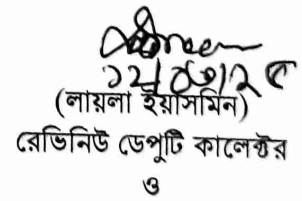 (লায়লা ইয়াসমিন)
রেভিনিউ ডেপুটি কালেক্টর
ও